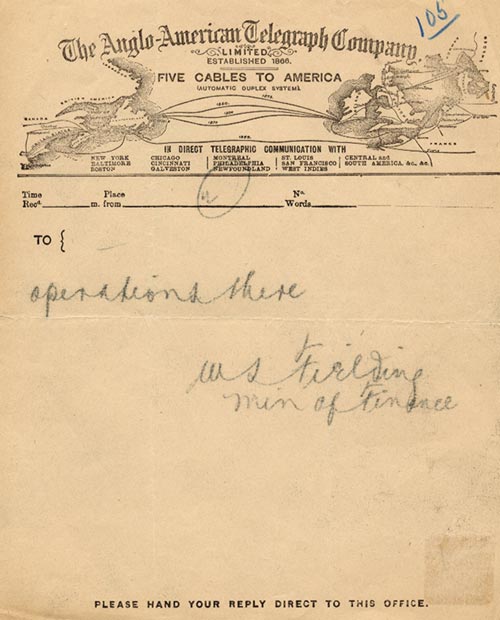 105
The Anglo-American Telegraph Company
LIMITED.
ESTABLISHED 1866.
FIVE CABLES TO AMERICA
(AUTOMATIC DUPLEX SYSTEM).
IN DIRECT TELEGRAPHIC COMMUNICATION WITH
NEW YORK CHICAGO MONTREAL ST. LOUIS CENTRAL and
BALTIMORE CINCINNATI PHILADELPHIA SAN FRANCISCO SOUTH AMERICA, &c. &c.
BOSTON GALVESTON NEWFOUNDLAND WEST INDIES
Time Place No.
Recd. m. from Words
2
TO {
operations there
W S Fielding
Min of Finance
PLEASE HAND YOUR REPLY DIRECT TO THIS OFFICE.